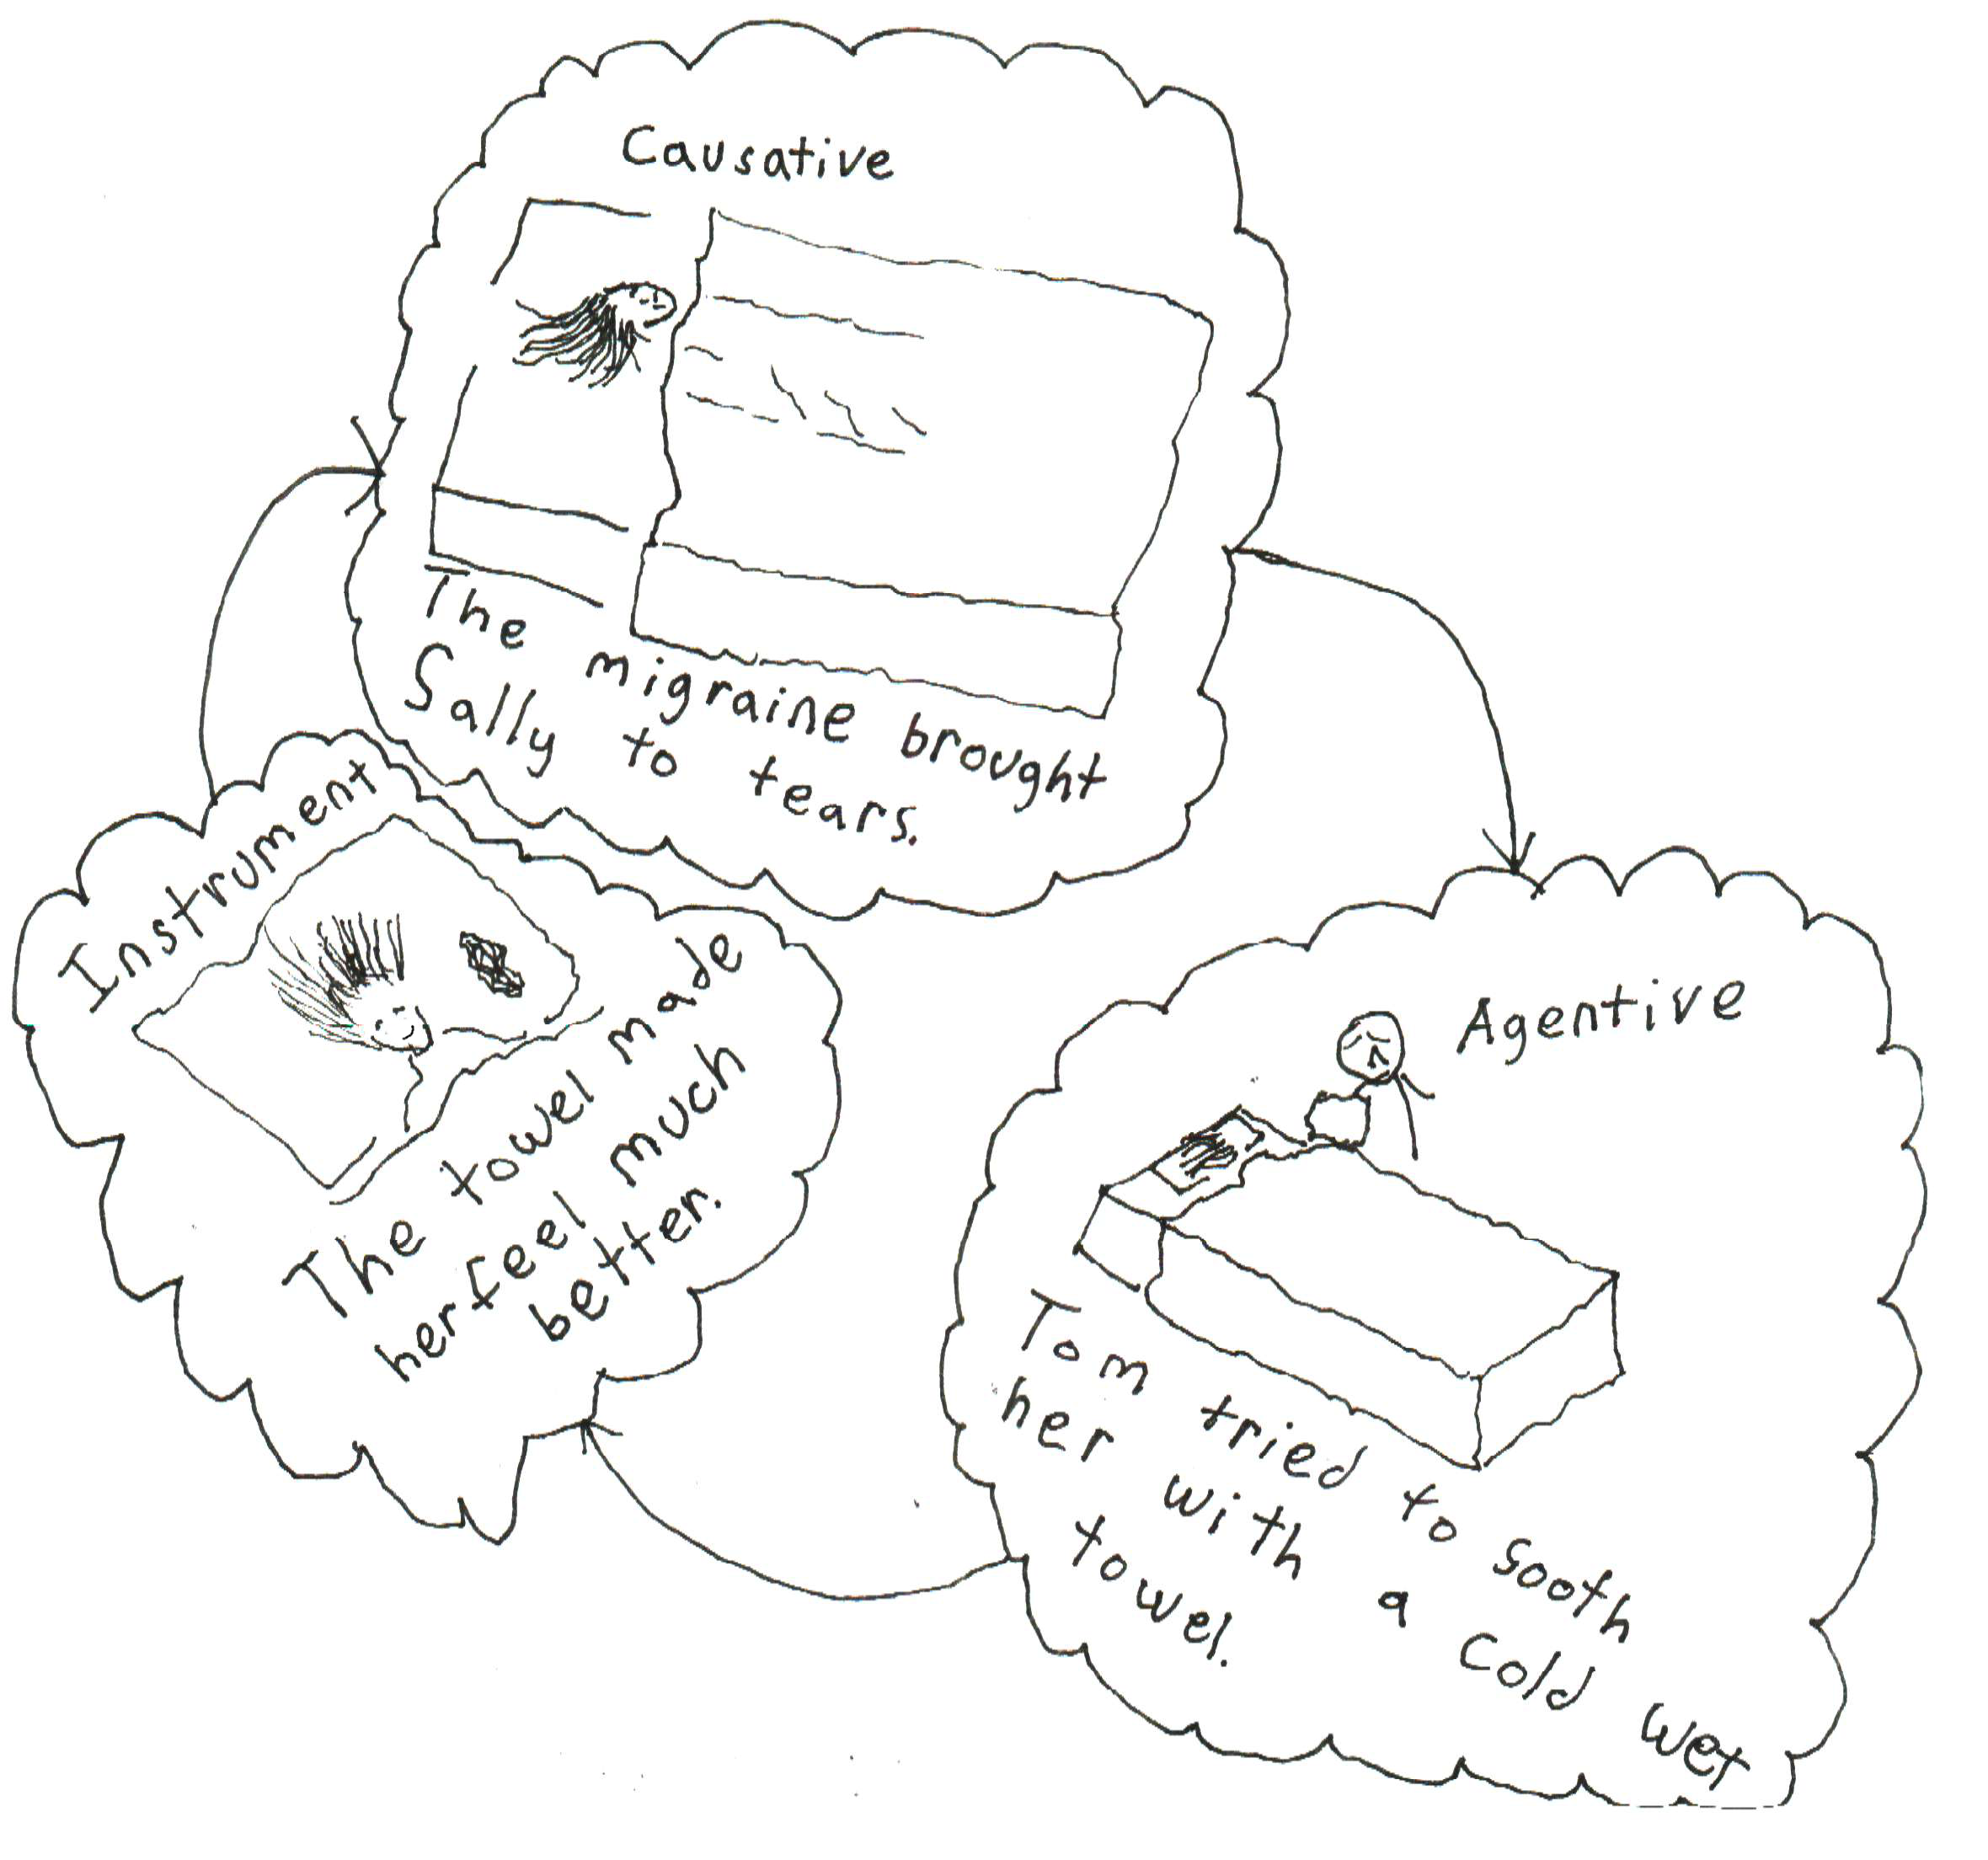 Causative
The migraine brought
Sally to tears.
Agentive
Tom tried to sooth
her with a cold wet
towel.
Instrument
The towel made
her feel much
better.